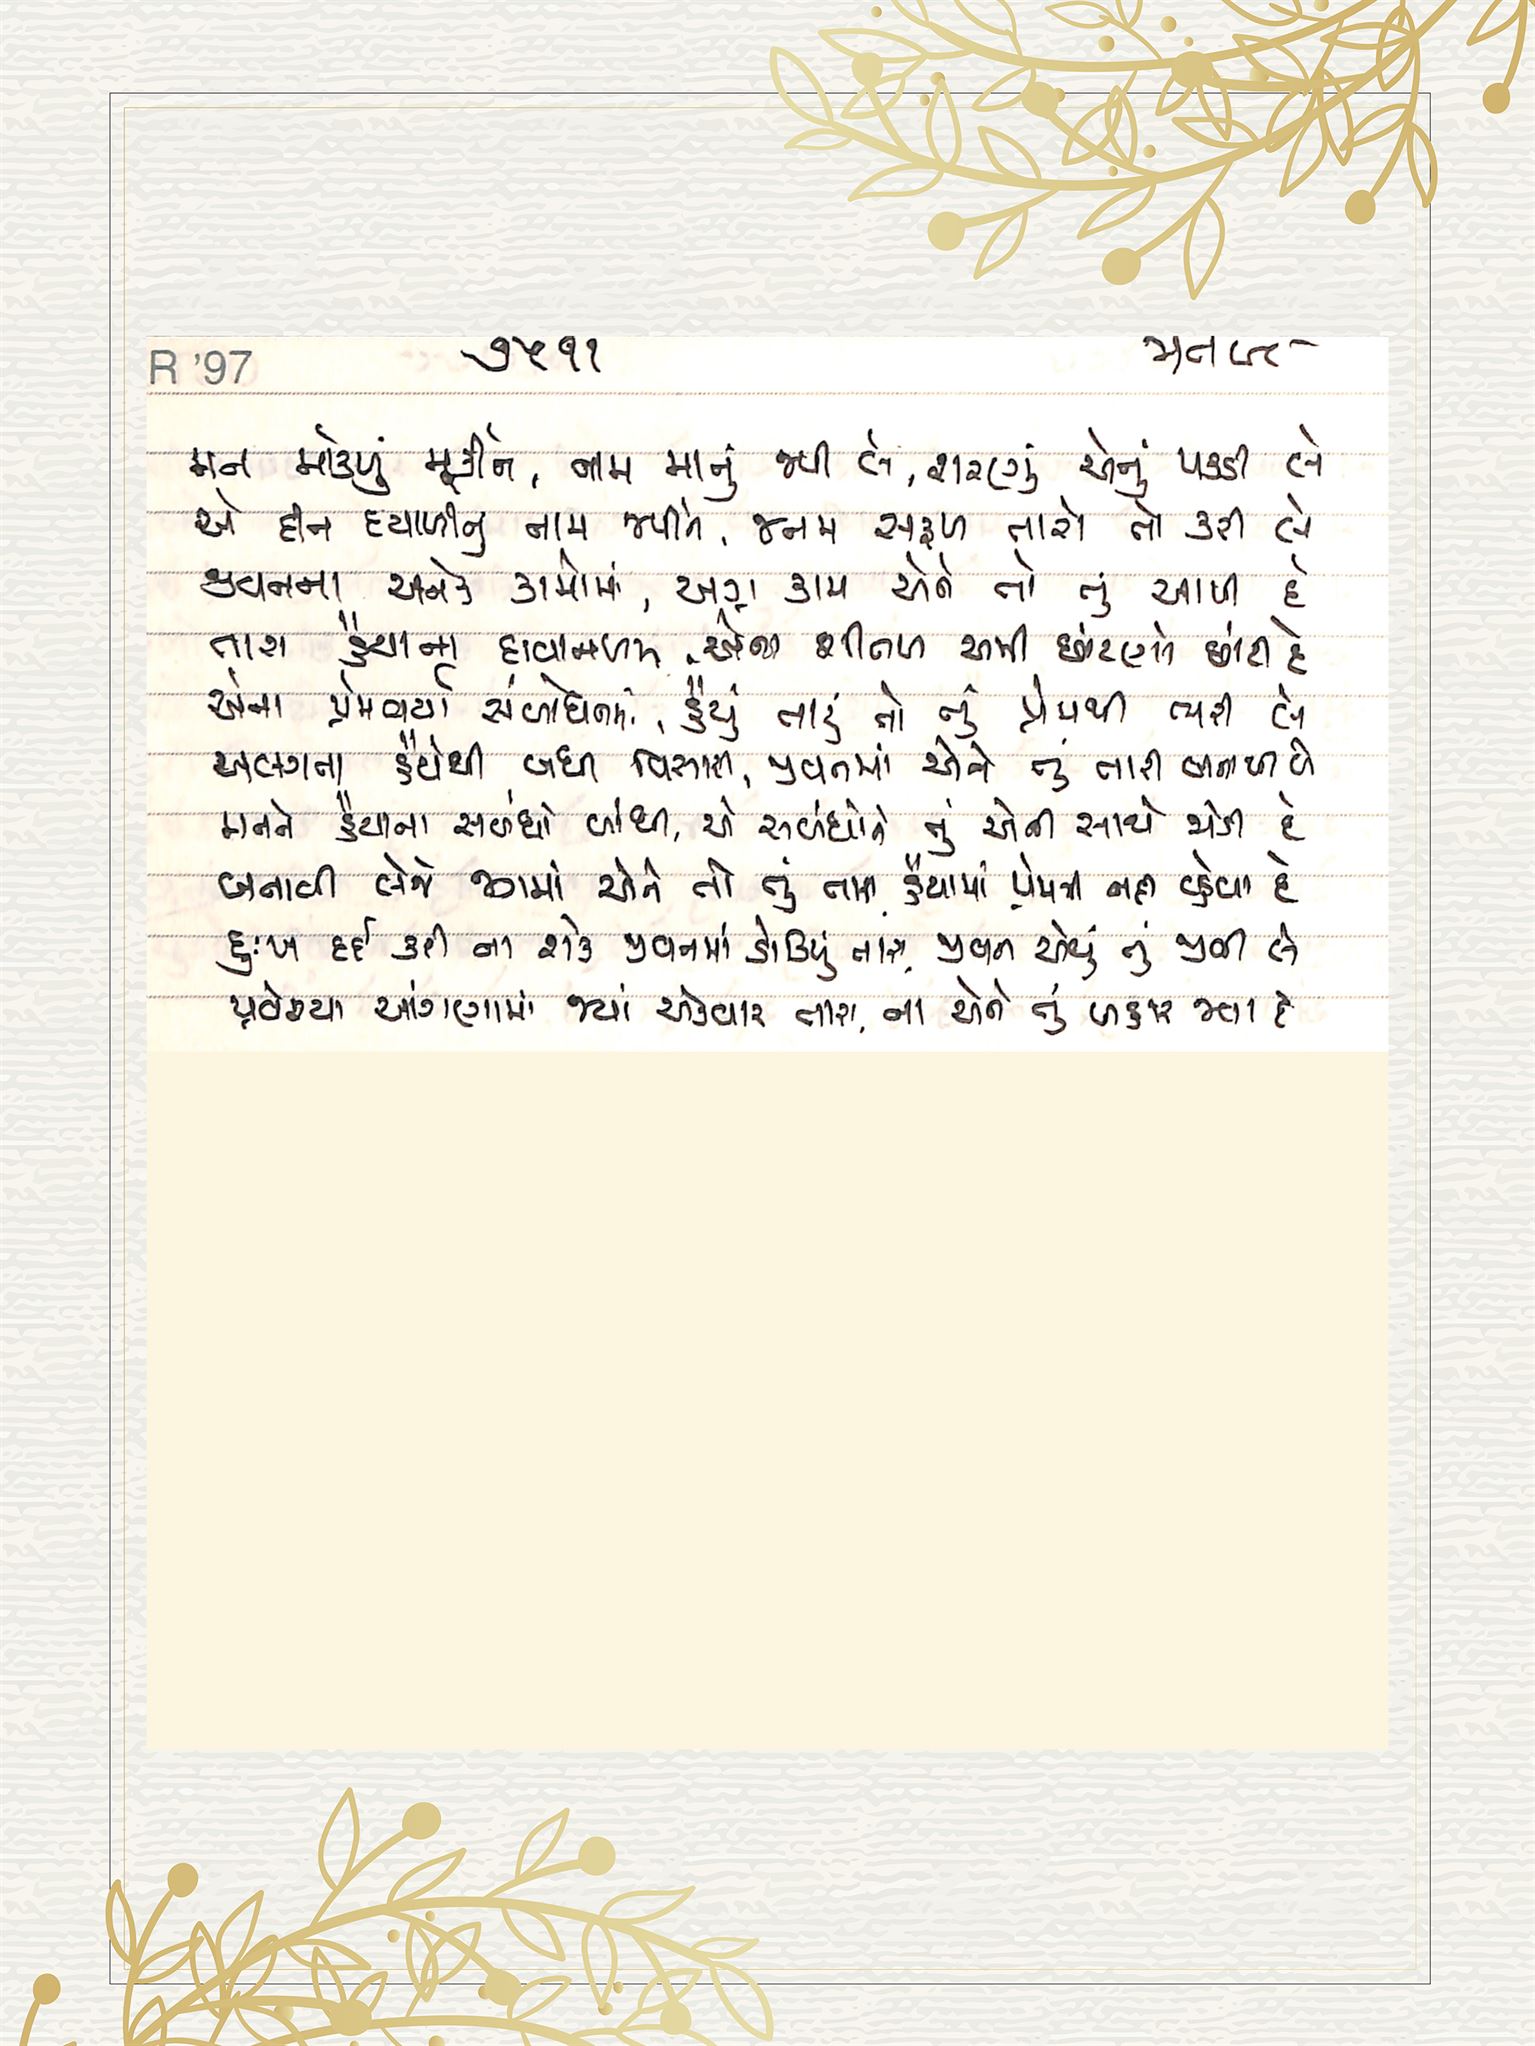 R '97 ૭૫૧૧ મન
મન મોકળું મૂકીને, નામ માનું જપી લે, શરણું એનું પકડી લે
એ દીન દયાળીનું નામ જપીને, જનમ સફળ તારો તો કરી લે
જીવનના અનેક કામોમાં, અગ્ર કામ એને તો તું આપી દે
તારા હૈયાના દાવાનળમાં, એના શીતળ અમી છાંટણો છાંટી દે
એના પ્રેમભર્યા સંબોધનમાં, હૈયું તારું તો તું પ્રેમથી ભરી લે
અલગતા હૈયેથી બધી વિસારી, જીવનમાં એને તું તારી બનાવી લે
મનને હૈયાના સબંધો બાંધી, એ સબંધોને તું એની સાથે જોડી દે
બનાવી લેજે જગમાં એને તો તું તારા, હૈયામાં પ્રેમના નહી વ્હેવા દે
દુઃખ દર્દ કરી ના શકે જીવનમાં ડોકિયું તારા, જીવન એવું તું જીવી લે
પ્રવેશ્યા આંગણામાં જ્યાં એકવાર તારા, ના એને તું બહાર જવા દે